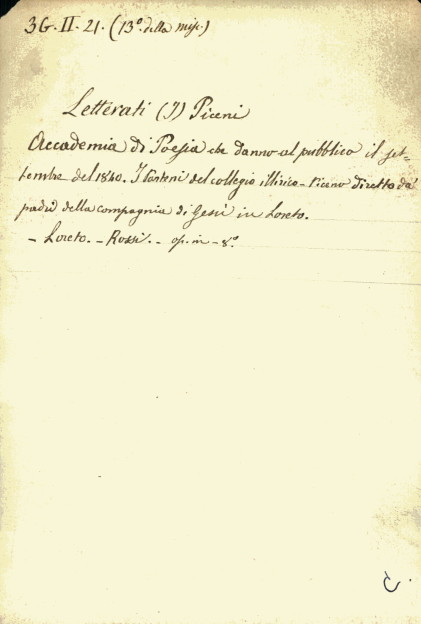 3G. II. 21. (13º. della misc.)
Letterati (I) Piceni
Accademia di Poesia che danno al pubblico il set-
tembre del 1840. I Conteni del collegio illirico-Piceno diretto da'
padri della compagnia di Gesù in Loreto.
- Loreto. - Rossi. - op. in - 8º.
C.